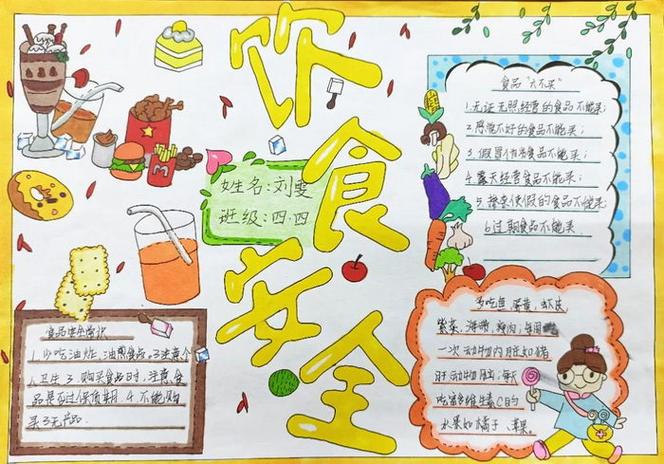 饮食安全
姓名:刘雯
班级:四.四
食品"六不买"
1.无证无照经营的食品不能买;
2.感觉不好的食品不能买;
3.假冒伪劣食品不能买;
4.露天经营食品不能买;
5.掺杂使假的食品不能买;
6过期食品不能买.
食品安全常识
1.少吃油炸、油煎食品.2注意个
人卫生3.购买食品时,注意食
品是否过保质期4不能购
买三无产品.
多吃鱼、蛋黄、虾皮
紫菜、海带、瘦肉;每周
一次动物内脏如猪
肝动物脑;每天
吃富含维生素C的
水果如橘子、苹果。